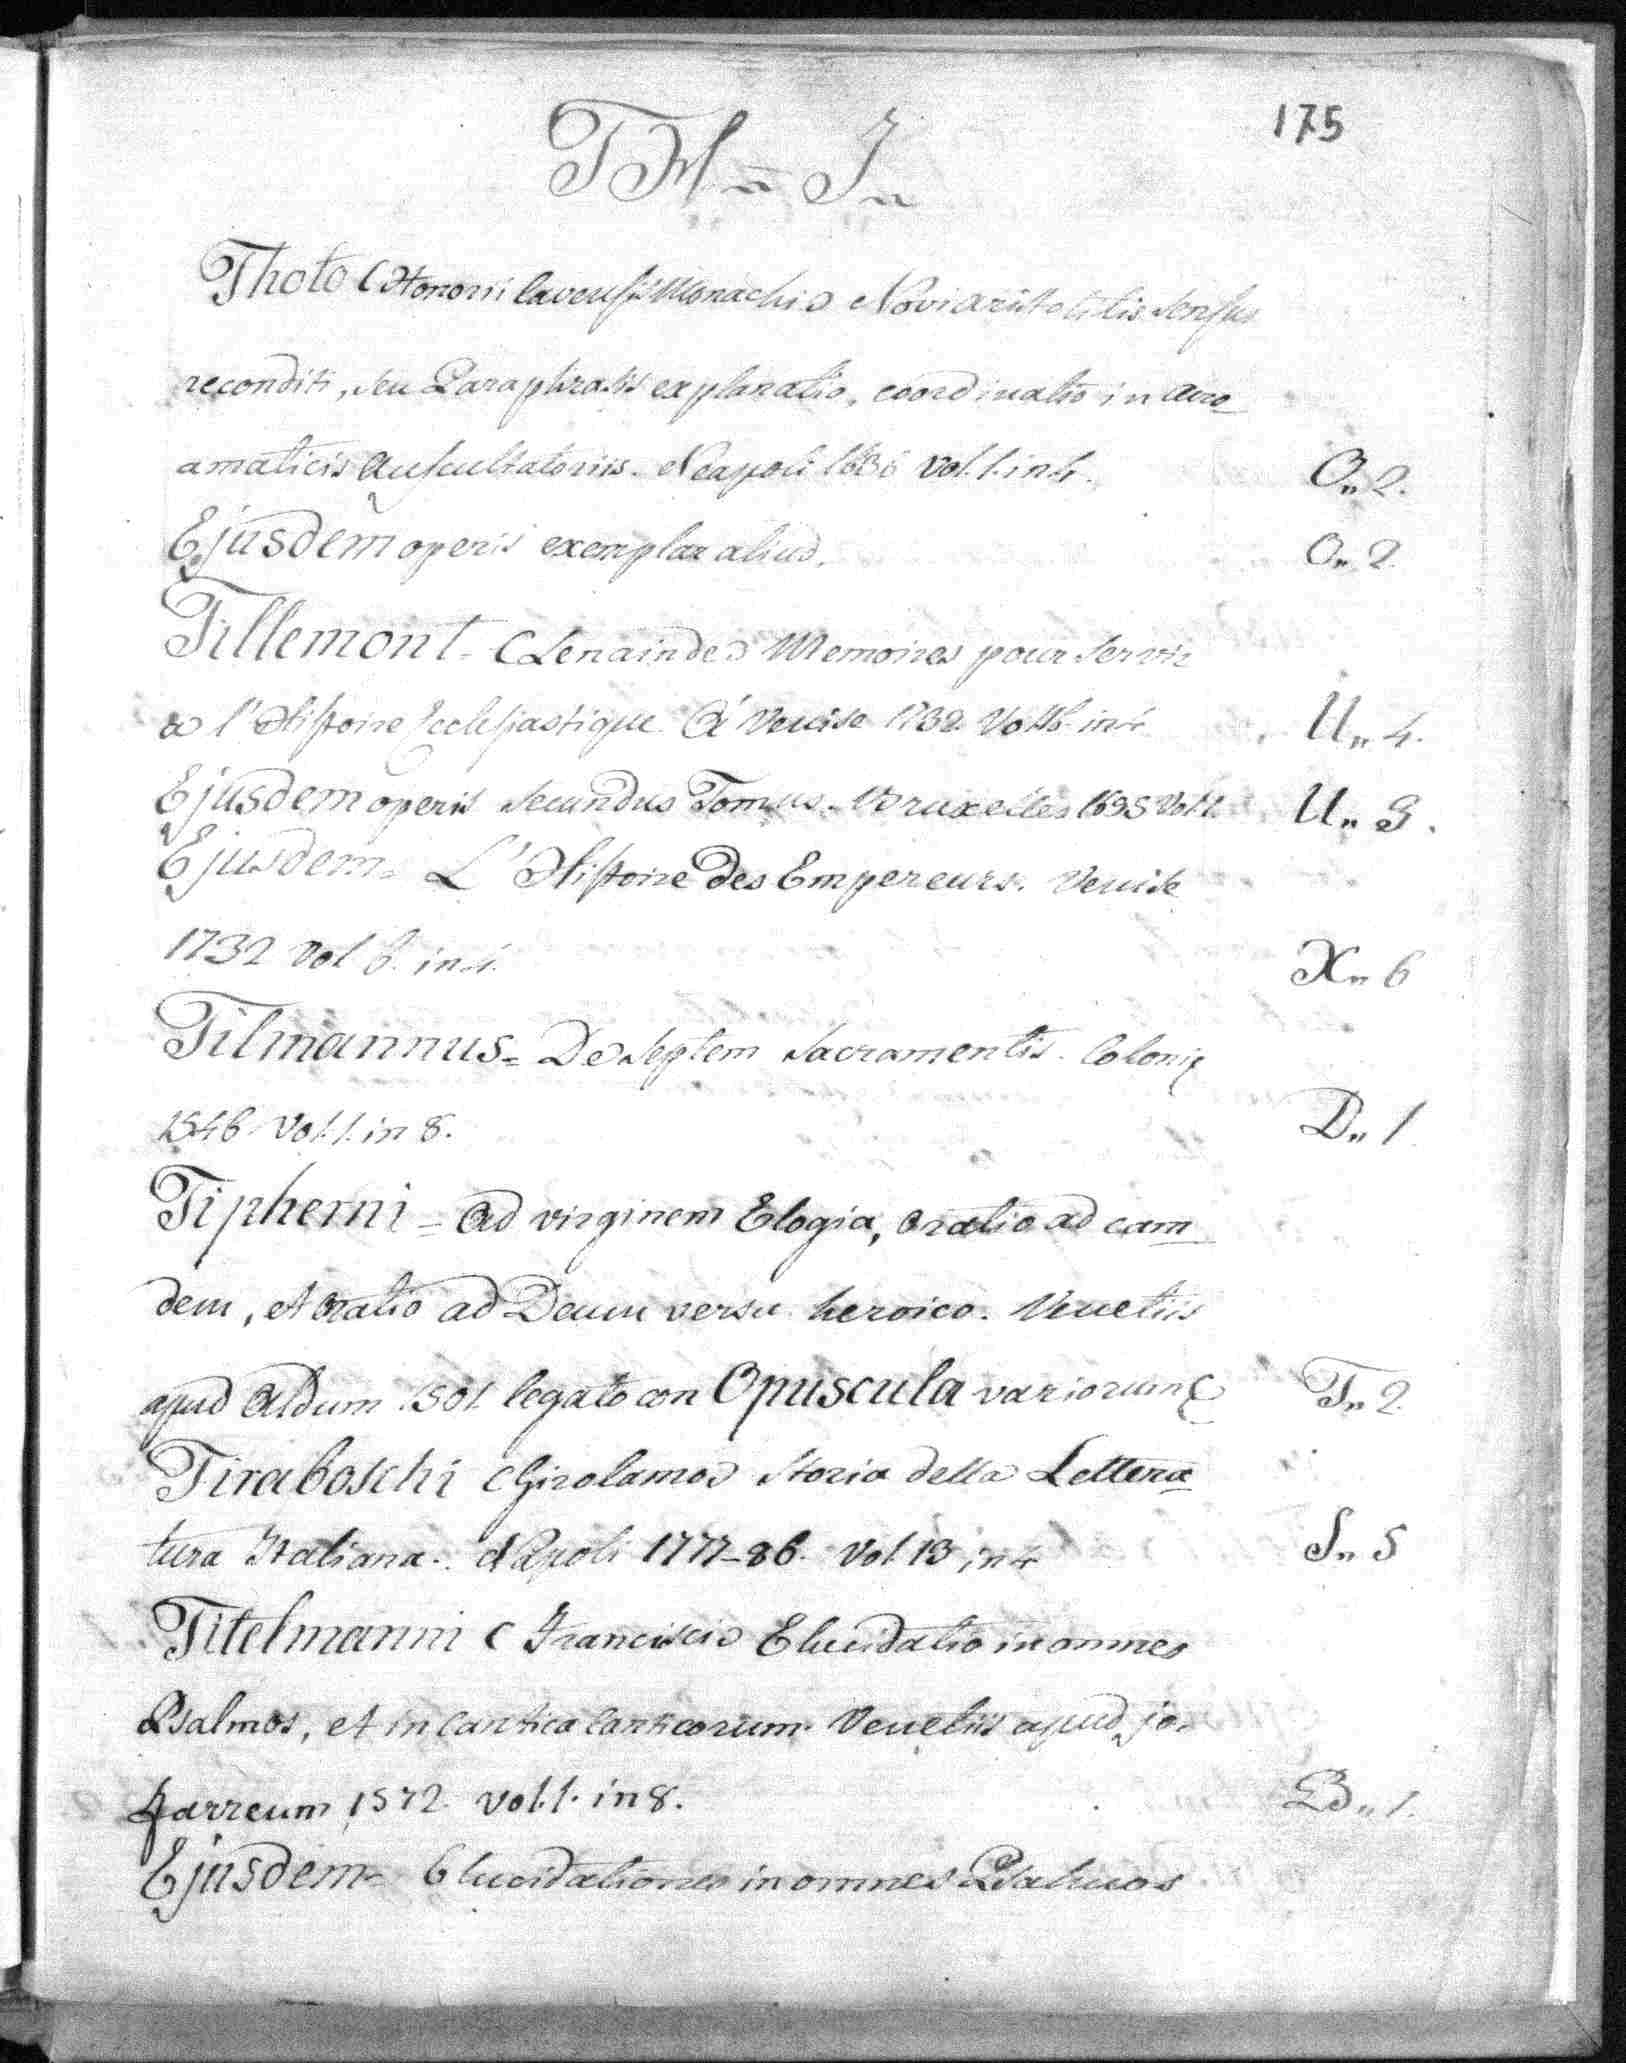 175
TH = I„
Thoto (Honorii Cavensis Monachi) Novi aristotelis sensus
reconditi, seu Paraphrasis explanatio, coordinatio in acro_
amaticis auscultatoriis. Neapoli 1686 vol. 1. in 4. O„ 2.
Ejusdem operis exemplar aliud. O„ 2.
Tillemont = (Lenain de) Memoires pour servir
a l'Histoire Ecclesiastique. A' Venise 1732. Vol. 16. in 4 U„ 4.
Ejusdem operis secundus Tomus. Bruxelles 1695 Vol. 1. U„ 3.
Ejusdem = L'Histoire des Empereurs. Venise
1732 Vol 6. in 4. X„ 6
Tilmannus = De septem sacramentis. Colonię
1546 Vol. 1. in 8. D„ 1
Tipherni = Ad virginem Elogia, oratio ad eam_
dem, et oratio ad Deum versu heroico. Venetiis
apud Aldum 1501. legato con Opuscula variorum & T„ 2.
Tiraboschi (Girolamo) Storia della Lettera=
tura Italiana. Napoli 1777-86. Vol 13 in 4 S„ 5
Titelmanni (Francisci) Elucidatio in omnes
Psalmos, et in Cantica canticorum. Venetiis apud jo.
Farreum 1572. vol. 1. in 8. B„ 1.
Ejusdem = Elucidationes in omnes Psalmos